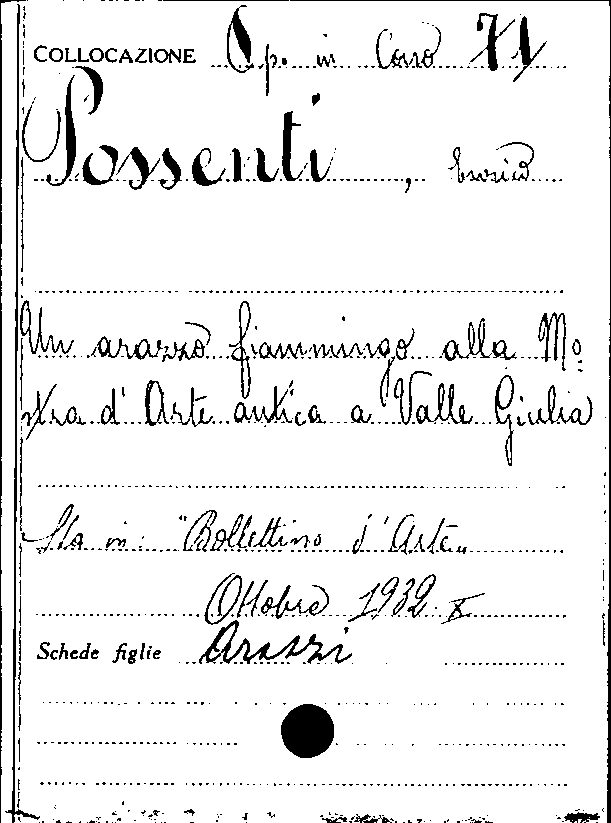 COLLOCAZIONE Op. in Corso 71
Possenti, Enrico
Un arazzo fiammingo alla Mo=
stra d'Arte antica a Valle Giulia
Sta in: "Bollettino d'Arte„
Ottobre 1932 X
Schede figlie Arazzi